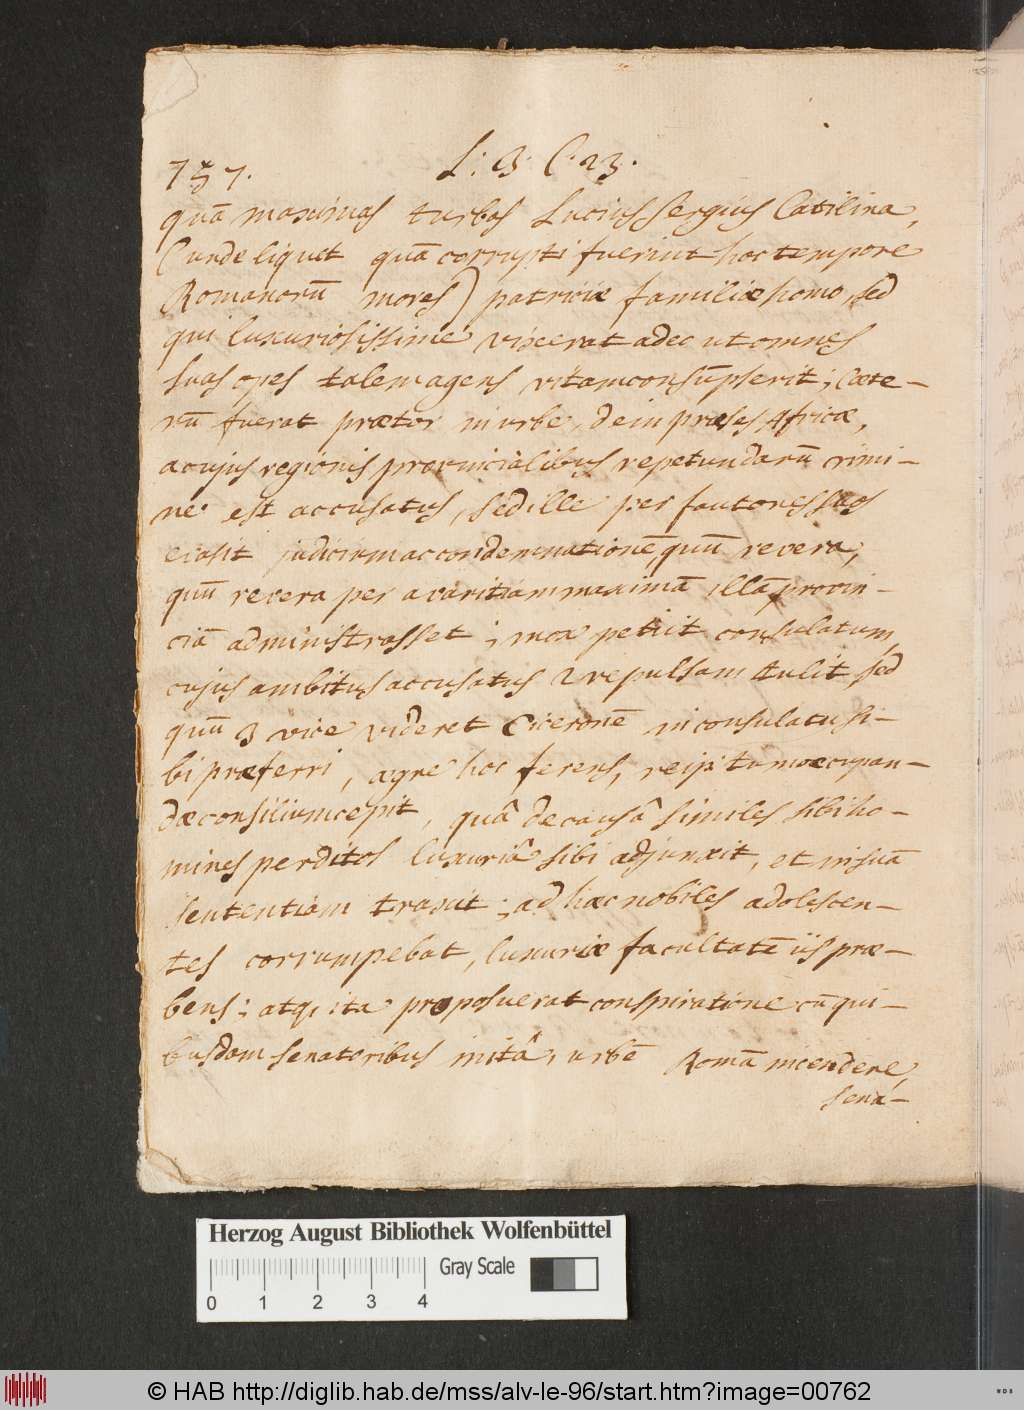 757.
L: 3. C. 23.
quā maximas turbas Lucius Sergius Catilina,
(unde liquet quā corrupti fuerint hoc tempore
Romanorū mores) patriciæ familiæ homo, sed
qui luxuriosissime vixerat adeo ut omnes
suas opes talem agens vitam consūpserit; Cæte-
rū fuerat prætor in urbe, dein præses Africæ,
a cujus regionis provincialibus repetundarū crimi-
ne est accusatus, sed ille per fautores suos
evasit judicium ac condemnationē, quū revera,
quū revera per avaritiam maximā illā provin-
ciā administrasset; mox petiit consulatum,
cujus ambitus accusatus 2 repulsam tulit, sed
quū 3 vice videret Ciceronē in consulatu si-
bi præferri, ægre hoc ferens, reip: tum occupan-
dæ consilium cepit, quâ de causâ similes sibi ho-
mines perditos luxuriâ sibi adjunxit, et in suā
sententiam traxit; ad hæc nobiles adolescen-
tes corrumpebat, luxuriæ facultatē iis præ-
bens; atq; ita proposuerat conspiratione cū qui-
busdam senatoribus initâ, urbē Romā incendere,
sena-
Herzog August Bibliothek Wolfenbüttel
0 1 2 3 4
Gray Scale
© HAB http://diglib.hab.de/mss/alv-le-96/start.htm?image=00762